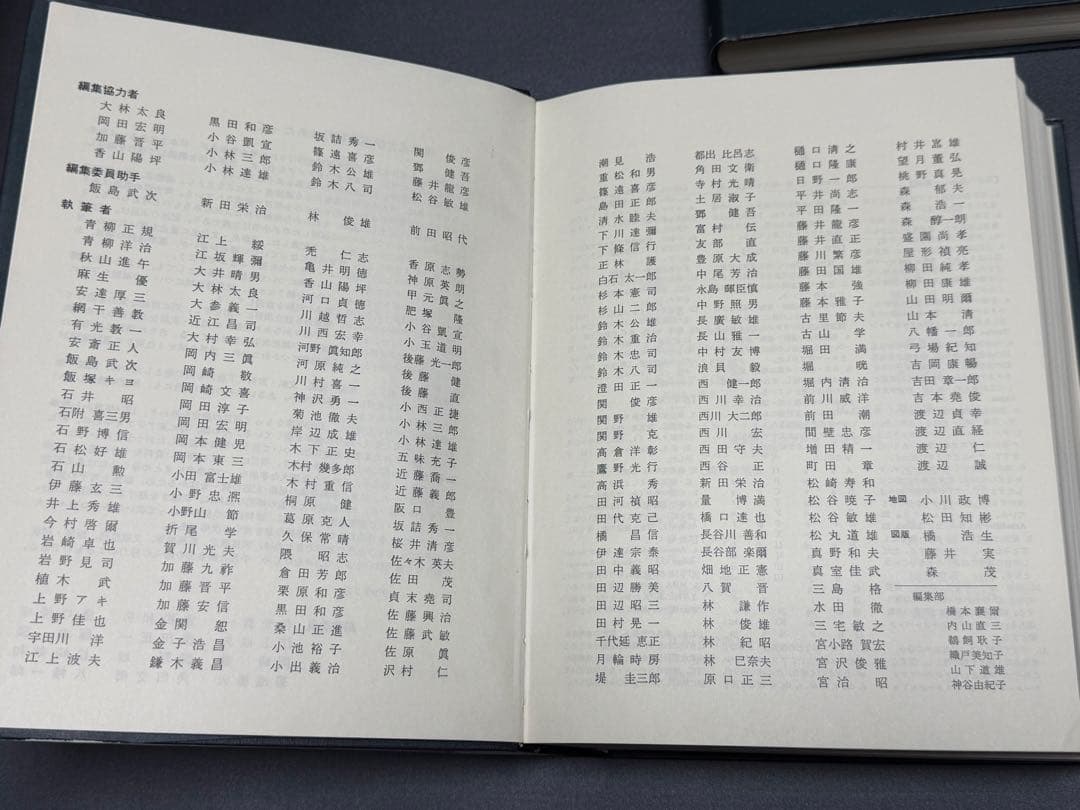 編集協力者
大林太良
岡田宏明
加藤晋平
香山陽坪
黒田和彦
小谷凱宣
小林三郎
小林達雄
坂詰秀一
篠遠喜彦
鈴木公雄
鈴木八司
関俊彦
鄧健吾
藤井龍彦
松谷敏雄
編集委員助手
飯島武次
新田栄治
林俊雄
前田昭代
執筆者
青柳正規
青柳洋治
秋山進午
麻生優
安達厚三
網干善教
有光教一
安斎正人
飯島武次
飯塚キヨ
石井昭
石附喜三男
石野博信
石松好雄
石山勲
伊藤玄三
井上秀雄
今村啓爾
岩崎卓也
岩野見司
植木武
上野アキ
上野佳也
宇田川洋
江上波夫
江上綏
江坂輝彌
大井晴男
大林太良
大参義一
近江昌司
大村幸弘
岡内三眞
岡崎敬
岡崎文喜
岡田淳子
岡田宏明
岡本健児
岡本東三
小田富士雄
小野忠凞
小野山節
折尾学
賀川光夫
加藤九祚
加藤晋平
加藤安信
金関恕
金子浩昌
鎌木義昌
禿仁志
亀井明徳
香山陽坪
河口貞徳
川越哲志
川西宏幸
河野眞知郎
河原純之
川村喜一
神沢勇一
菊池徹夫
岸辺成雄
木下正史
木村幾多郎
木村重信
桐原健
葛原克人
久保常晴
隈昭志
倉田芳郎
栗原和彦
黒田和彦
桑山正進
小池裕子
小出義治
香原志勢
神原英朗
甲元眞之
肥塚隆
小谷凱宣
小玉道明
後藤光一郎
後藤健
後藤直
小西正捷
小林三郎
小林達雄
五味充子
近藤喬一
近藤義郎
阪口豊
坂詰秀一
桜井清彦
佐々木英夫
佐田茂
貞末堯司
佐藤興治
佐藤武敏
佐原眞
沢村仁
潮見浩
重松和男
篠遠喜彦
島田正郎
清水睦夫
下川達彌
下條信行
正林護
白石太一郎
杉本憲司
杉山二郎
鈴木公雄
鈴木重治
鈴木忠司
鈴木八司
澄田正一
関俊彦
関野雄
関野克
高倉洋彰
鷹野光行
高浜秀
田河禎昭
田代克己
橘昌信
伊達宗泰
田中義昭
田辺勝美
田辺昭三
田村晃一
千代延恵正
月輪時房
堤圭三郎
都出比呂志
角田文衛
寺村光晴
土居淑子
鄧健吾
富村伝
友部直
豊大成
中尾芳治
永島暉臣慎
中野照男
長廣敏雄
長山雅一
中村友博
浪貝毅
西健一郎
西川幸治
西川大二郎
西川宏
西田守夫
西谷正
新田栄治
量博満
橋口達也
長谷川善和
長谷部楽爾
畑地正憲
八賀晋
林謙作
林俊雄
林紀昭
林巳奈夫
原口正三
樋口清之
樋口隆康
日野一郎
平井尚志
平田隆一
藤井龍彦
藤井直正
藤川繁彦
藤田国雄
藤本強
古里節夫
古山学
堀田満
堀晄
堀内清治
前川威洋
前田潮
間壁忠彦
増田精一
町田章
松崎寿和
松谷暁子
松谷敏雄
松丸道雄
真野和夫
真室佳武
三島格
水田徹
三宅敏之
宮小路賀宏
宮沢俊雅
宮治昭
村井嵓雄
望月董弘
桃野真晃
森郁夫
森浩一
森醇一朗
盛園尚孝
屋形禎亮
柳田純孝
山田明爾
山本清
八幡一郎
弓場紀知
吉岡康暢
吉田章一郎
吉本堯俊
渡辺貞幸
渡辺直経
渡辺仁
渡辺誠
地図 小川政博
松田知彬
図版 橘浩生
藤井実
森茂
編集部
橋本襄爾
内山直三
鵜飼耿子
磯戸美知子
山下道雄
神谷由紀子